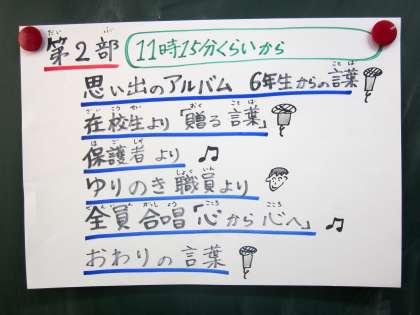 第2部 11時15分くらいから
思い出のアルバム 6年生からの言葉
在校生より「贈る言葉」
保護者より
ゆりのき職員より
全員合唱「心から心へ」
おわりの言葉